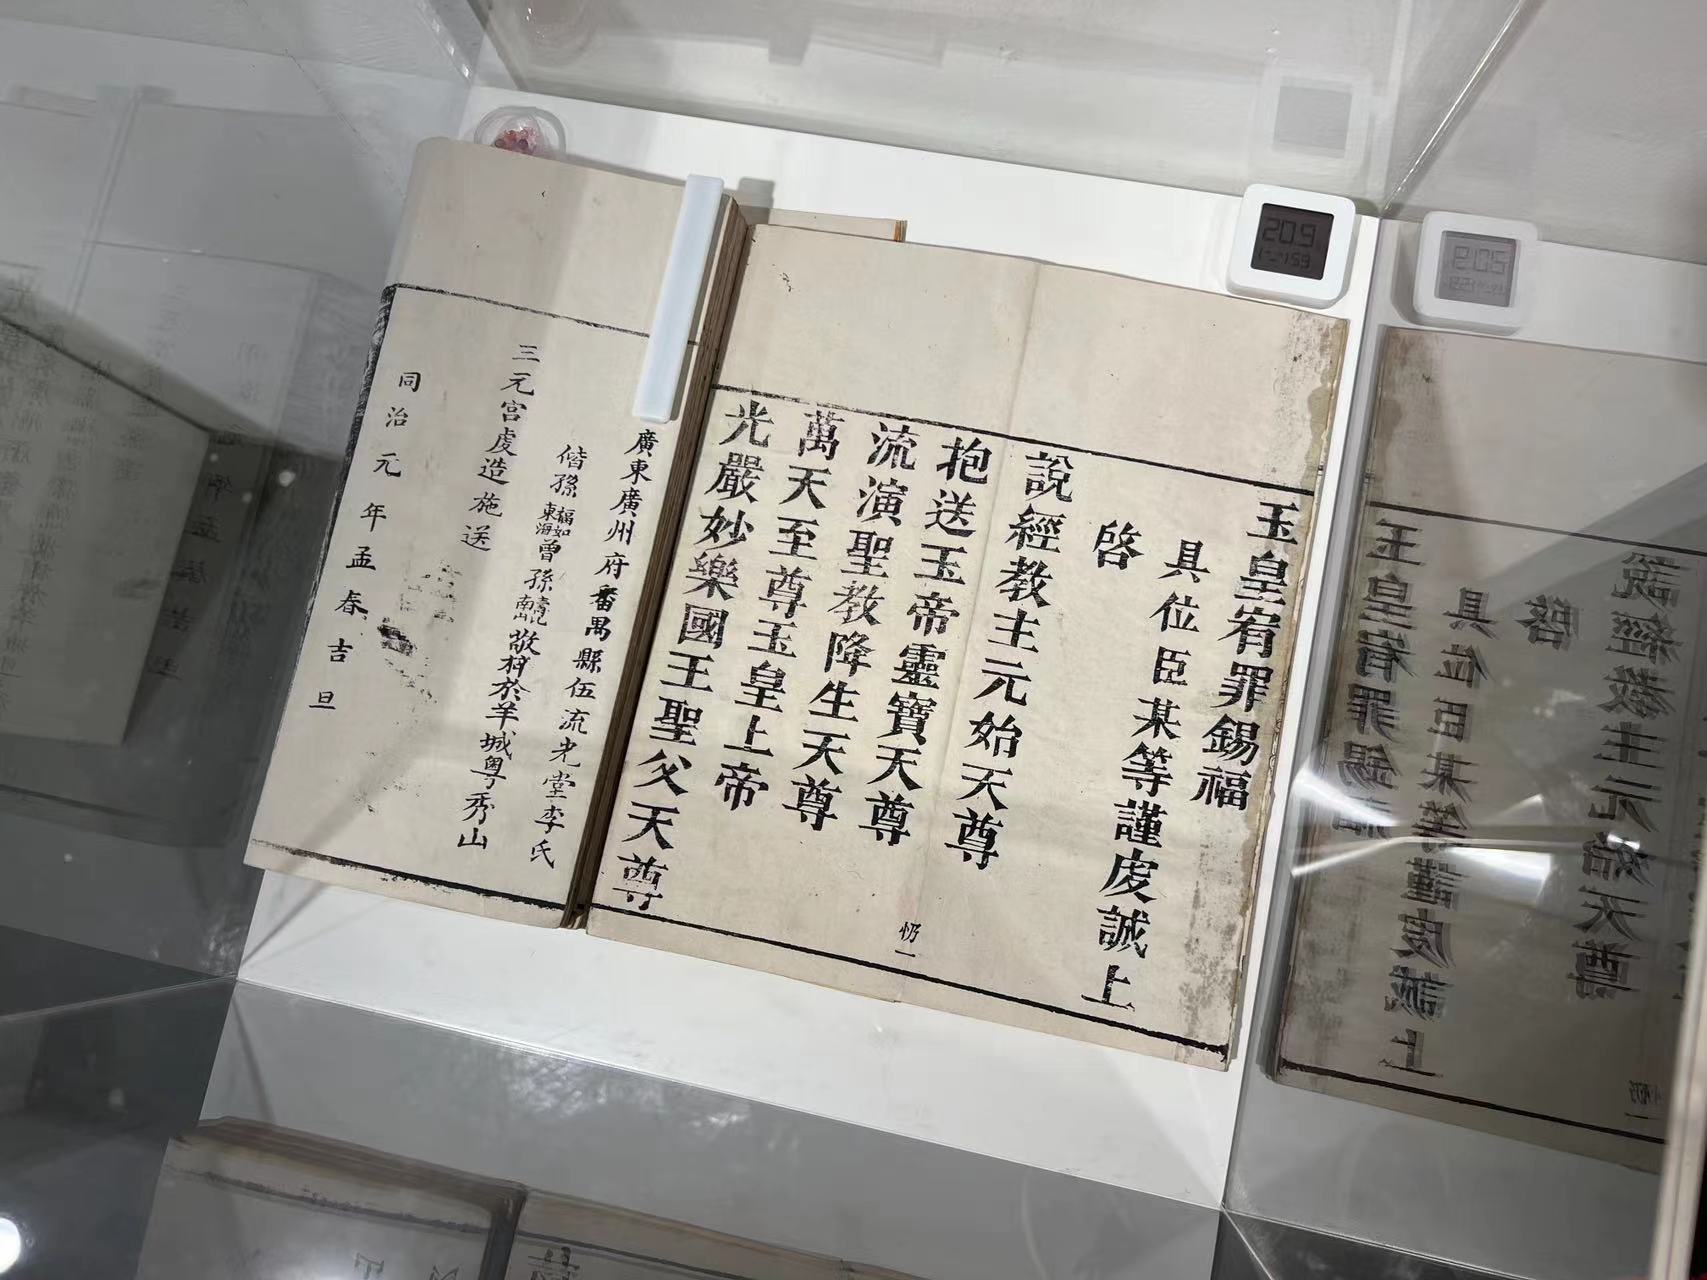 玉皇宥罪錫福
具位臣某等謹虔誠上
啓
說經教主元始天尊
抱送玉帝靈寶天尊
流演聖教降生天尊
萬天至尊玉皇上帝
光嚴妙樂國王聖父天尊
一
廣東廣州府番禺縣伍流光堂李氏
偕孫東海福如曾孫南山敬梓於羊城粤秀山
三元宮虔造施送
同治元年孟春吉旦
20.9